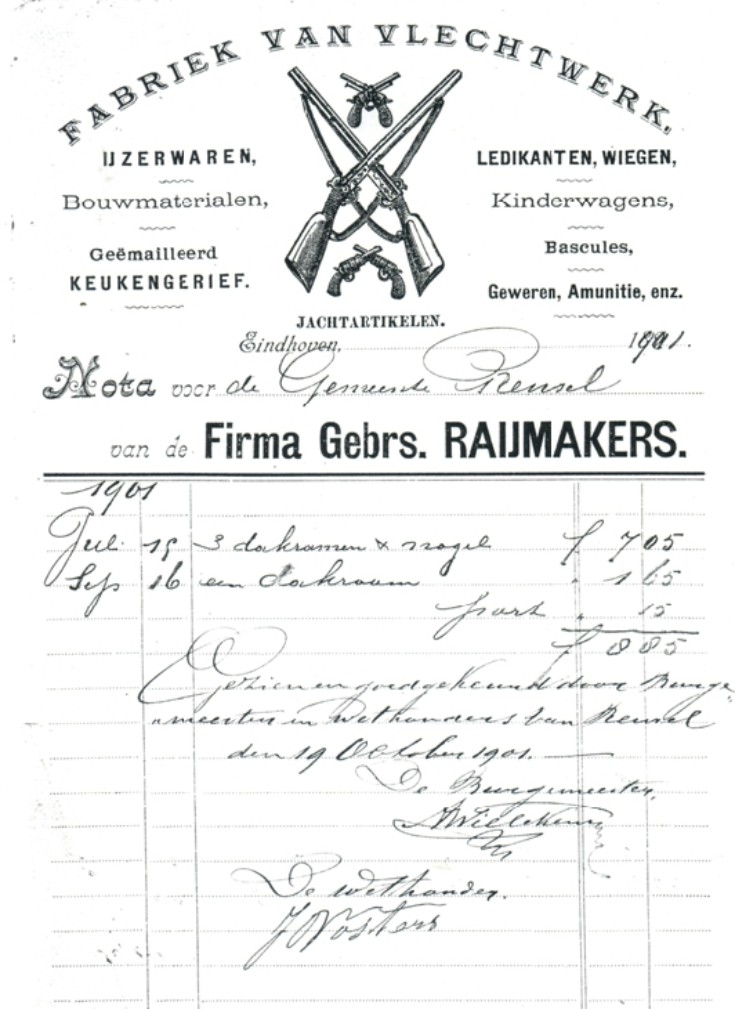 FABRIEK VAN VLECHTWERK.
IJZERWAREN,
Bouwmaterialen,
Geëmailleerd
KEUKENGERIEF.
LEDIKANTEN, WIEGEN,
Kinderwagens,
Bascules,
Geweren, Amunitie, enz.
JACHTARTIKELEN.
Eindhoven, 1901.
Nota voor de Gemeente Reusel
van de Firma Gebrs. RAIJMAKERS.
1901
Jul. 15 3 dakramen & nagel f 7 05
Sep 16 een dakraam " 1 65
port " 15
f 8 85
Gezien en goedgekeurd door Burge„
„meester en Wethouders van Reusel
den 19 October 1901.
De Burgemeester,
De wethouder.
J Vosters